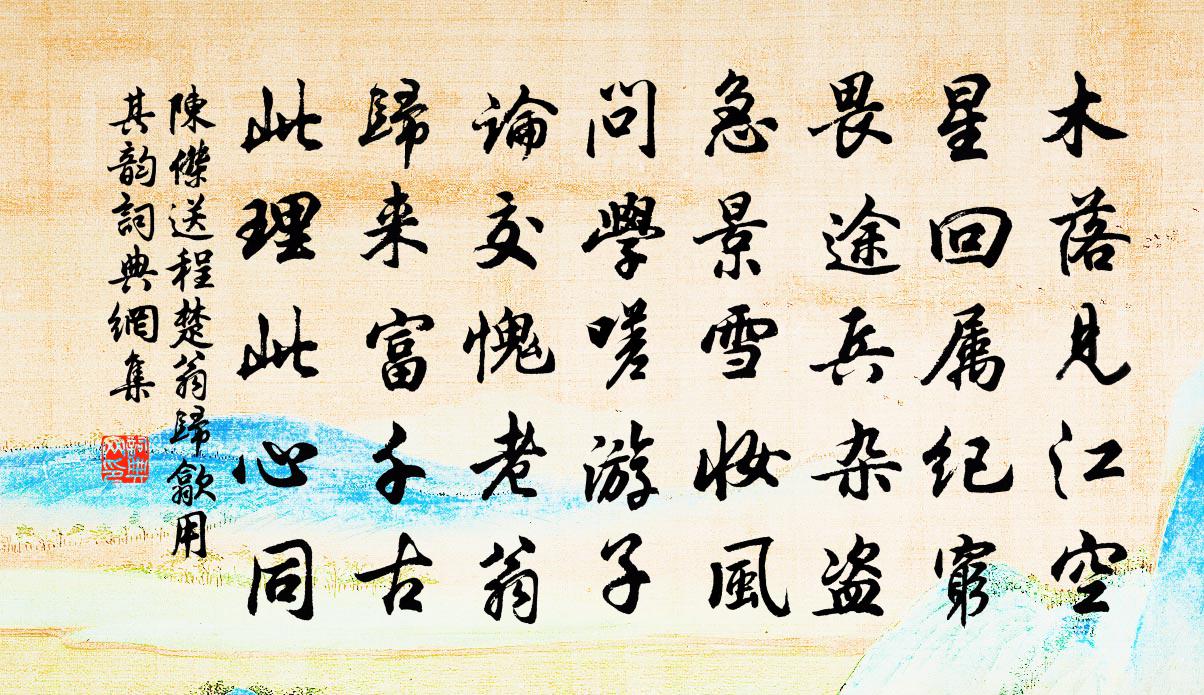 木落見江空
星回属纪窮
畏途兵杂盗
急景雪妆風
问學嗟游子
论交愧老翁
歸来富千古
此理此心同
陳傑送程楚翁歸歙用
其韵詞典網集